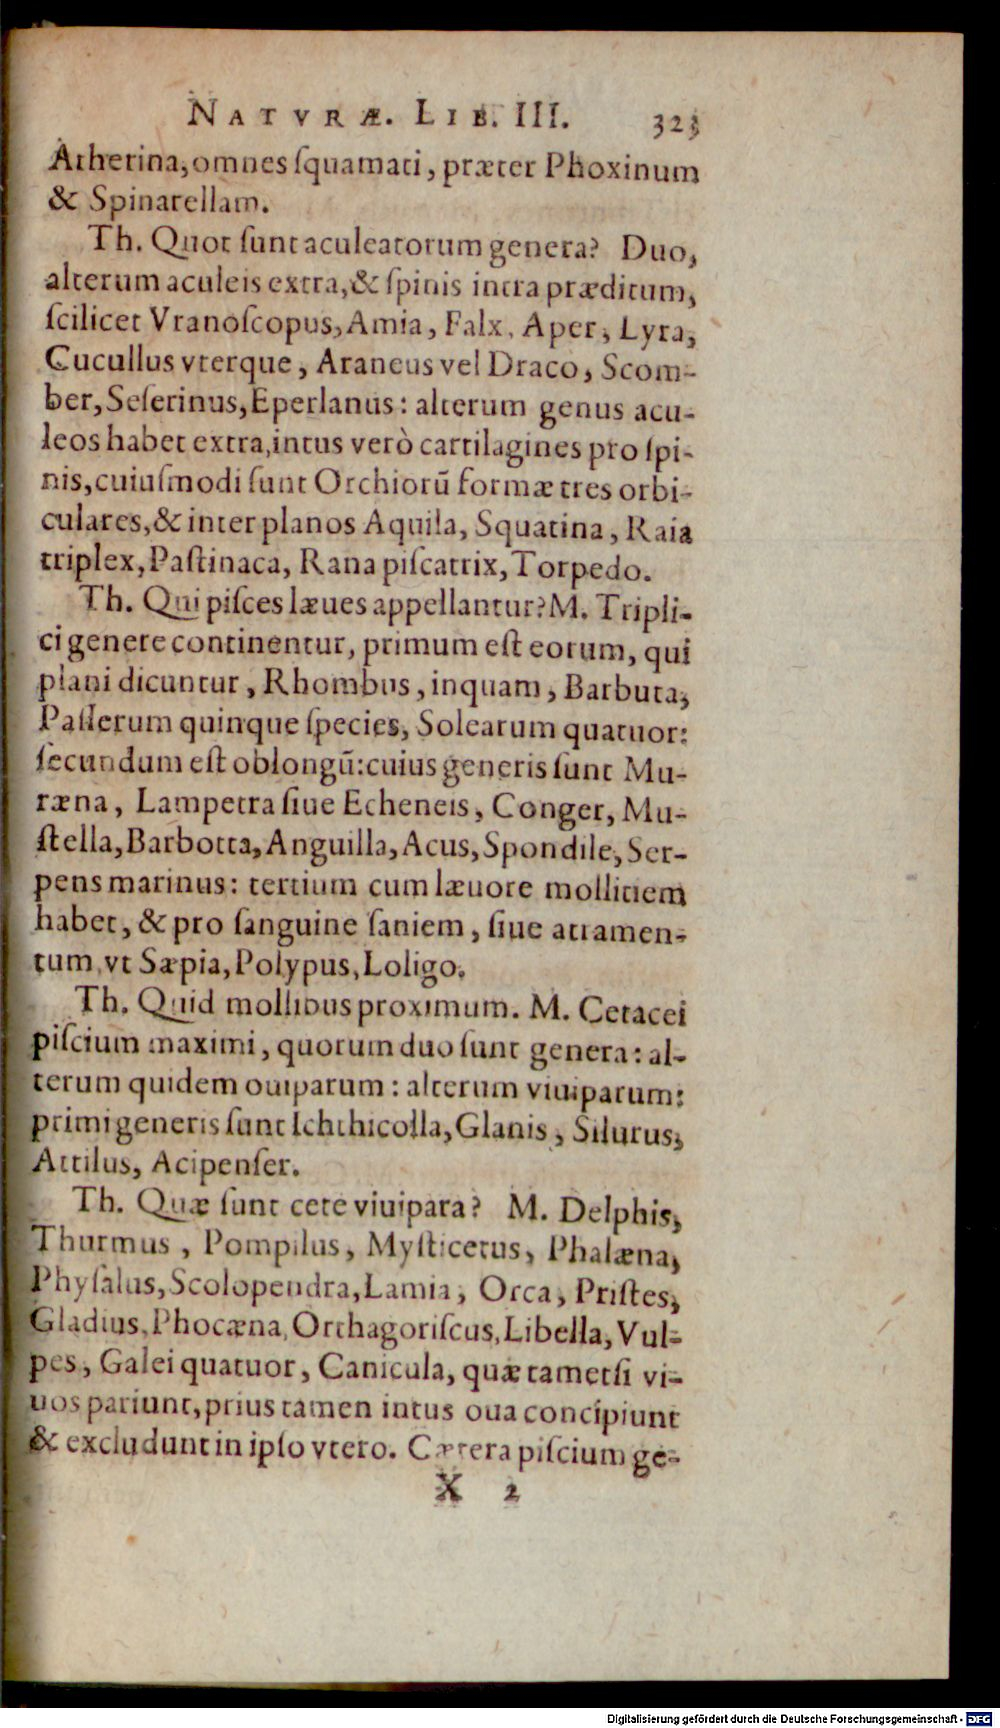 NATVRÆ. LIB. III. 323
Atherina, omnes ſquamati, præter Phoxinum
& Spinarellam.
Th. Quot ſunt aculeatorum genera? Duo,
alterum aculeis extra, & ſpinis intra præditum,
ſcilicet Vranoſcopus, Amia, Falx, Aper, Lyra,
Cucullus vterque, Araneus vel Draco, Scom-
ber, Seſerinus, Eperlanus: alterum genus acu-
leos habet extra, intus verò cartilagines pro ſpi-
nis, cuiuſmodi ſunt Orchiorū formæ tres orbi-
culares, & inter planos Aquila, Squatina, Raia
triplex, Paſtinaca, Rana piſcatrix, Torpedo.
Th. Qui piſces læues appellantur? M. Tripli-
ci genere continentur, primum eſt eorum, qui
plani dicuntur, Rhombus, inquam, Barbuta,
Paſſerum quinque ſpecies, Solearum quatuor:
ſecundum eſt oblongū: cuius generis ſunt Mu-
ræna, Lampetra ſiue Echeneis, Conger, Mu-
ſtella, Barbotta, Anguilla, Acus, Spondile, Ser-
pens marinus: tertium cum læuore mollitiem
habet, & pro ſanguine ſaniem, ſiue atramen-
tum, vt Sæpia, Polypus, Loligo.
Th. Quid mollibus proximum. M. Cetacei
piſcium maximi, quorum duo ſunt genera: al-
terum quidem ouiparum: alterum viuiparum:
primi generis ſunt Ichthicolla, Glanis, Silurus,
Attilus, Acipenſer.
Th. Quæ ſunt cete viuipara? M. Delphis,
Thurmus, Pompilus, Myſticetus, Phalæna,
Phyſalus, Scolopendra, Lamia, Orca, Priſtes,
Gladius, Phocæna, Orthagoriſcus, Libella, Vul-
pes, Galei quatuor, Canicula, quæ tametſi vi-
uos pariunt, prius tamen intus oua concipiunt
& excludunt in ipſo vtero. Cætera piſcium ge-
X 2
Digitalisierung gefördert durch die Deutsche Forschungsgemeinschaft - DFG